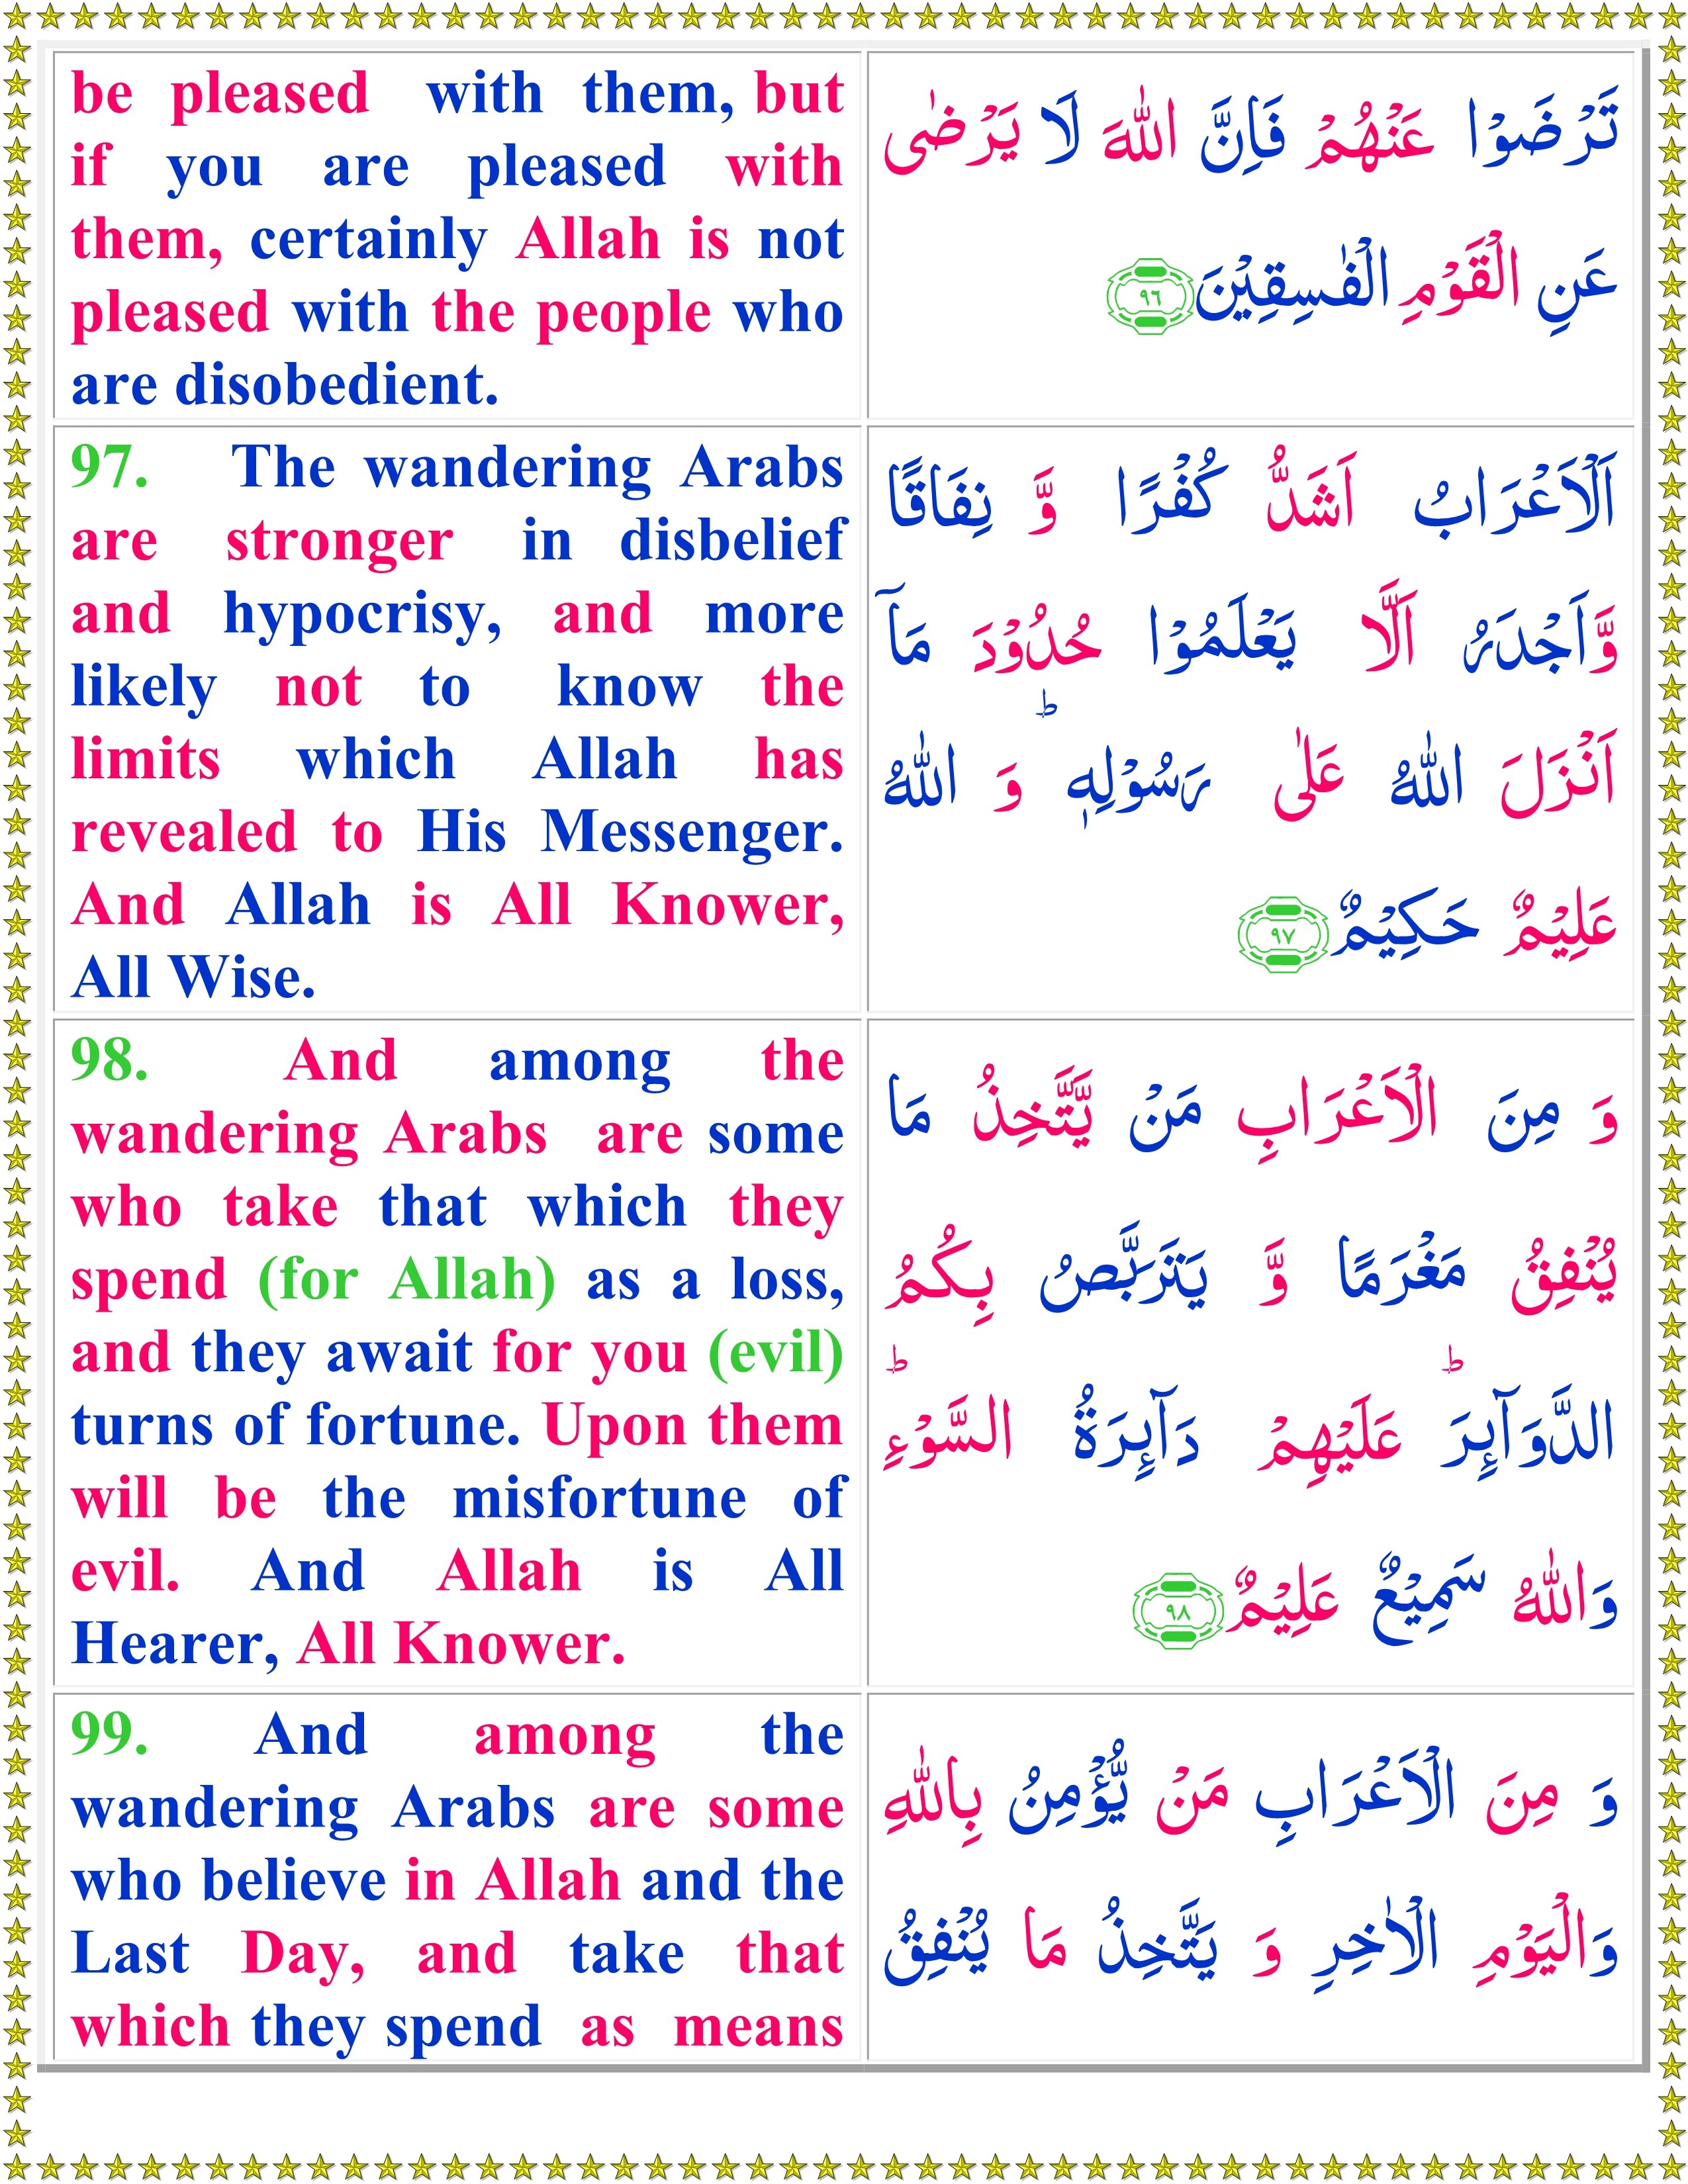 be pleased with them, but
if you are pleased with
them, certainly Allah is not
pleased with the people who
are disobedient.
تَرْضَوْا عَنْهُمْ فَاِنَّ اللّٰهَ لَا يَرْضٰى
عَنِ الْقَوْمِ الْفٰسِقِيْنَ ٩٦
97. The wandering Arabs
are stronger in disbelief
and hypocrisy, and more
likely not to know the
limits which Allah has
revealed to His Messenger.
And Allah is All Knower,
All Wise.
اَلْاَعْرَابُ اَشَدُّ كُفْرًا وَّ نِفَاقًا
وَّاَجْدَرُ اَلَّا يَعْلَمُوْا حُدُوْدَ مَاۤ
اَنْزَلَ اللّٰهُ عَلٰى رَسُوْلِهٖ ؕ وَ اللّٰهُ
عَلِيْمٌ حَكِيْمٌ ٩٧
98. And among the
wandering Arabs are some
who take that which they
spend (for Allah) as a loss,
and they await for you (evil)
turns of fortune. Upon them
will be the misfortune of
evil. And Allah is All
Hearer, All Knower.
وَ مِنَ الْاَعْرَابِ مَنْ يَّتَّخِذُ مَا
يُنْفِقُ مَغْرَمًا وَّ يَتَرَبَّصُ بِكُمُ
الدَّوَآئِرَ ؕ عَلَيْهِمْ دَآئِرَةُ السَّوْءِ ؕ
وَاللّٰهُ سَمِيْعٌ عَلِيْمٌ ٩٨
99. And among the
wandering Arabs are some
who believe in Allah and the
Last Day, and take that
which they spend as means
وَ مِنَ الْاَعْرَابِ مَنْ يُّؤْمِنُ بِاللّٰهِ
وَالْيَوْمِ الْاٰخِرِ وَ يَتَّخِذُ مَا يُنْفِقُ